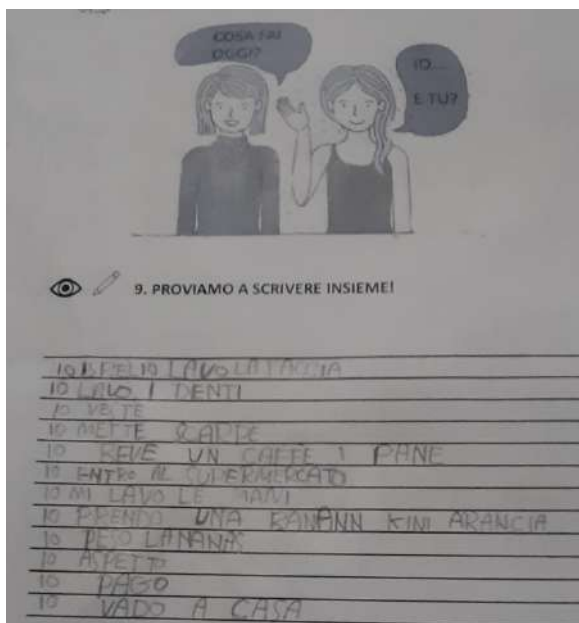 COSA FAI
OGGI?
IO....
E TU?
9. PROVIAMO A SCRIVERE INSIEME!
IO LAVO LA FACCIA
IO LAVO I DENTI
IO VESTE
IO METTE SCARPE
IO BEVE UN CAFFE 1 PANE
IO ENTRO AL SUPERMERCATO
IO MI LAVO LE MANI
IO PRENDO UNA BANANN KINI ARANCIA
IO PESO LANANAS
IO ASPETTO
IO PAGO
IO VADO A CASA